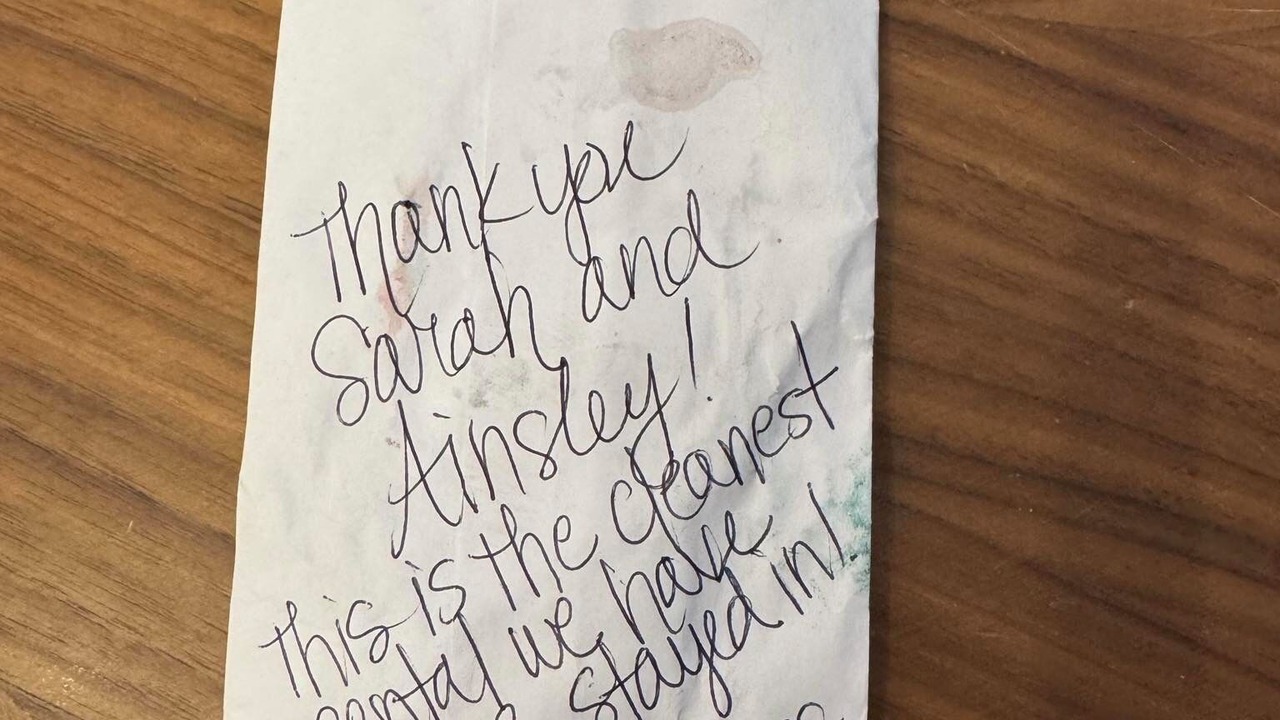 Thank you
Sarah and
Ainsley!
This is the cleanest
rental we have
stayed in!